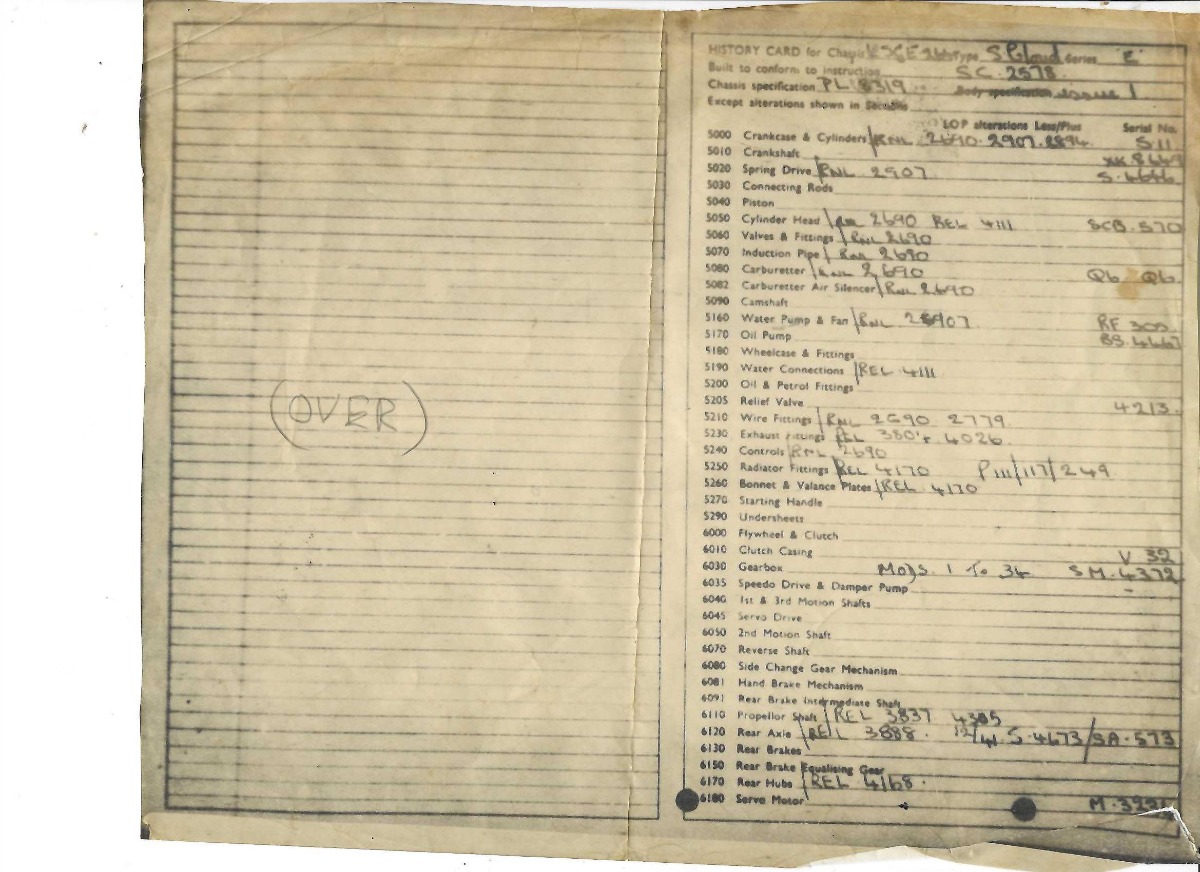 (OVER)
HISTORY CARD for Chassis Type S. Cloud Series 'E'
Built to conform to instruction SC. 2578.
Chassis specification PL 8319 Body specification issue 1
Except alterations shown in Sections
LOP alterations Less/Plus Serial No.
5000 Crankcase & Cylinders RNL 2690. 2907. 2894. S 11
5010 Crankshaft
5020 Spring Drive RNL 2907. S. 4646
5030 Connecting Rods
5040 Piston
5050 Cylinder Head RNL 2690 REL 4111 SCB. 570
5060 Valves & Fittings RNL 2690
5070 Induction Pipe RNL 2690
5080 Carburetter RNL 2690 Q6 Q6
5082 Carburetter Air Silencer RNL 2690
5090 Camshaft
5160 Water Pump & Fan RNL 2907. RF 305
5170 Oil Pump BS. 4667
5180 Wheelcase & Fittings
5190 Water Connections REL 4111
5200 Oil & Petrol Fittings
5205 Relief Valve 4213.
5210 Wire Fittings RNL 2690 2779.
5230 Exhaust Fittings REL 4026.
5240 Controls RNL 2690
5250 Radiator Fittings REL 4170 P111/117/249
5260 Bonnet & Valance Plates REL. 4170
5270 Starting Handle
5290 Undersheets
6000 Flywheel & Clutch
6010 Clutch Casing V 32
6030 Gearbox Mods. 1 To 34 SM. 4372
6035 Speedo Drive & Damper Pump
6040 1st & 3rd Motion Shafts
6045 Servo Drive
6050 2nd Motion Shaft
6070 Reverse Shaft
6080 Side Change Gear Mechanism
6081 Hand Brake Mechanism
6091 Rear Brake Intermediate Shaft
6110 Propellor Shaft REL 3837 4385
6120 Rear Axle REL 3888. 12/41 S. 4673/SA. 573
6130 Rear Brakes
6150 Rear Brake Equalising Gear
6170 Rear Hubs REL 4168.
6180 Servo Motor